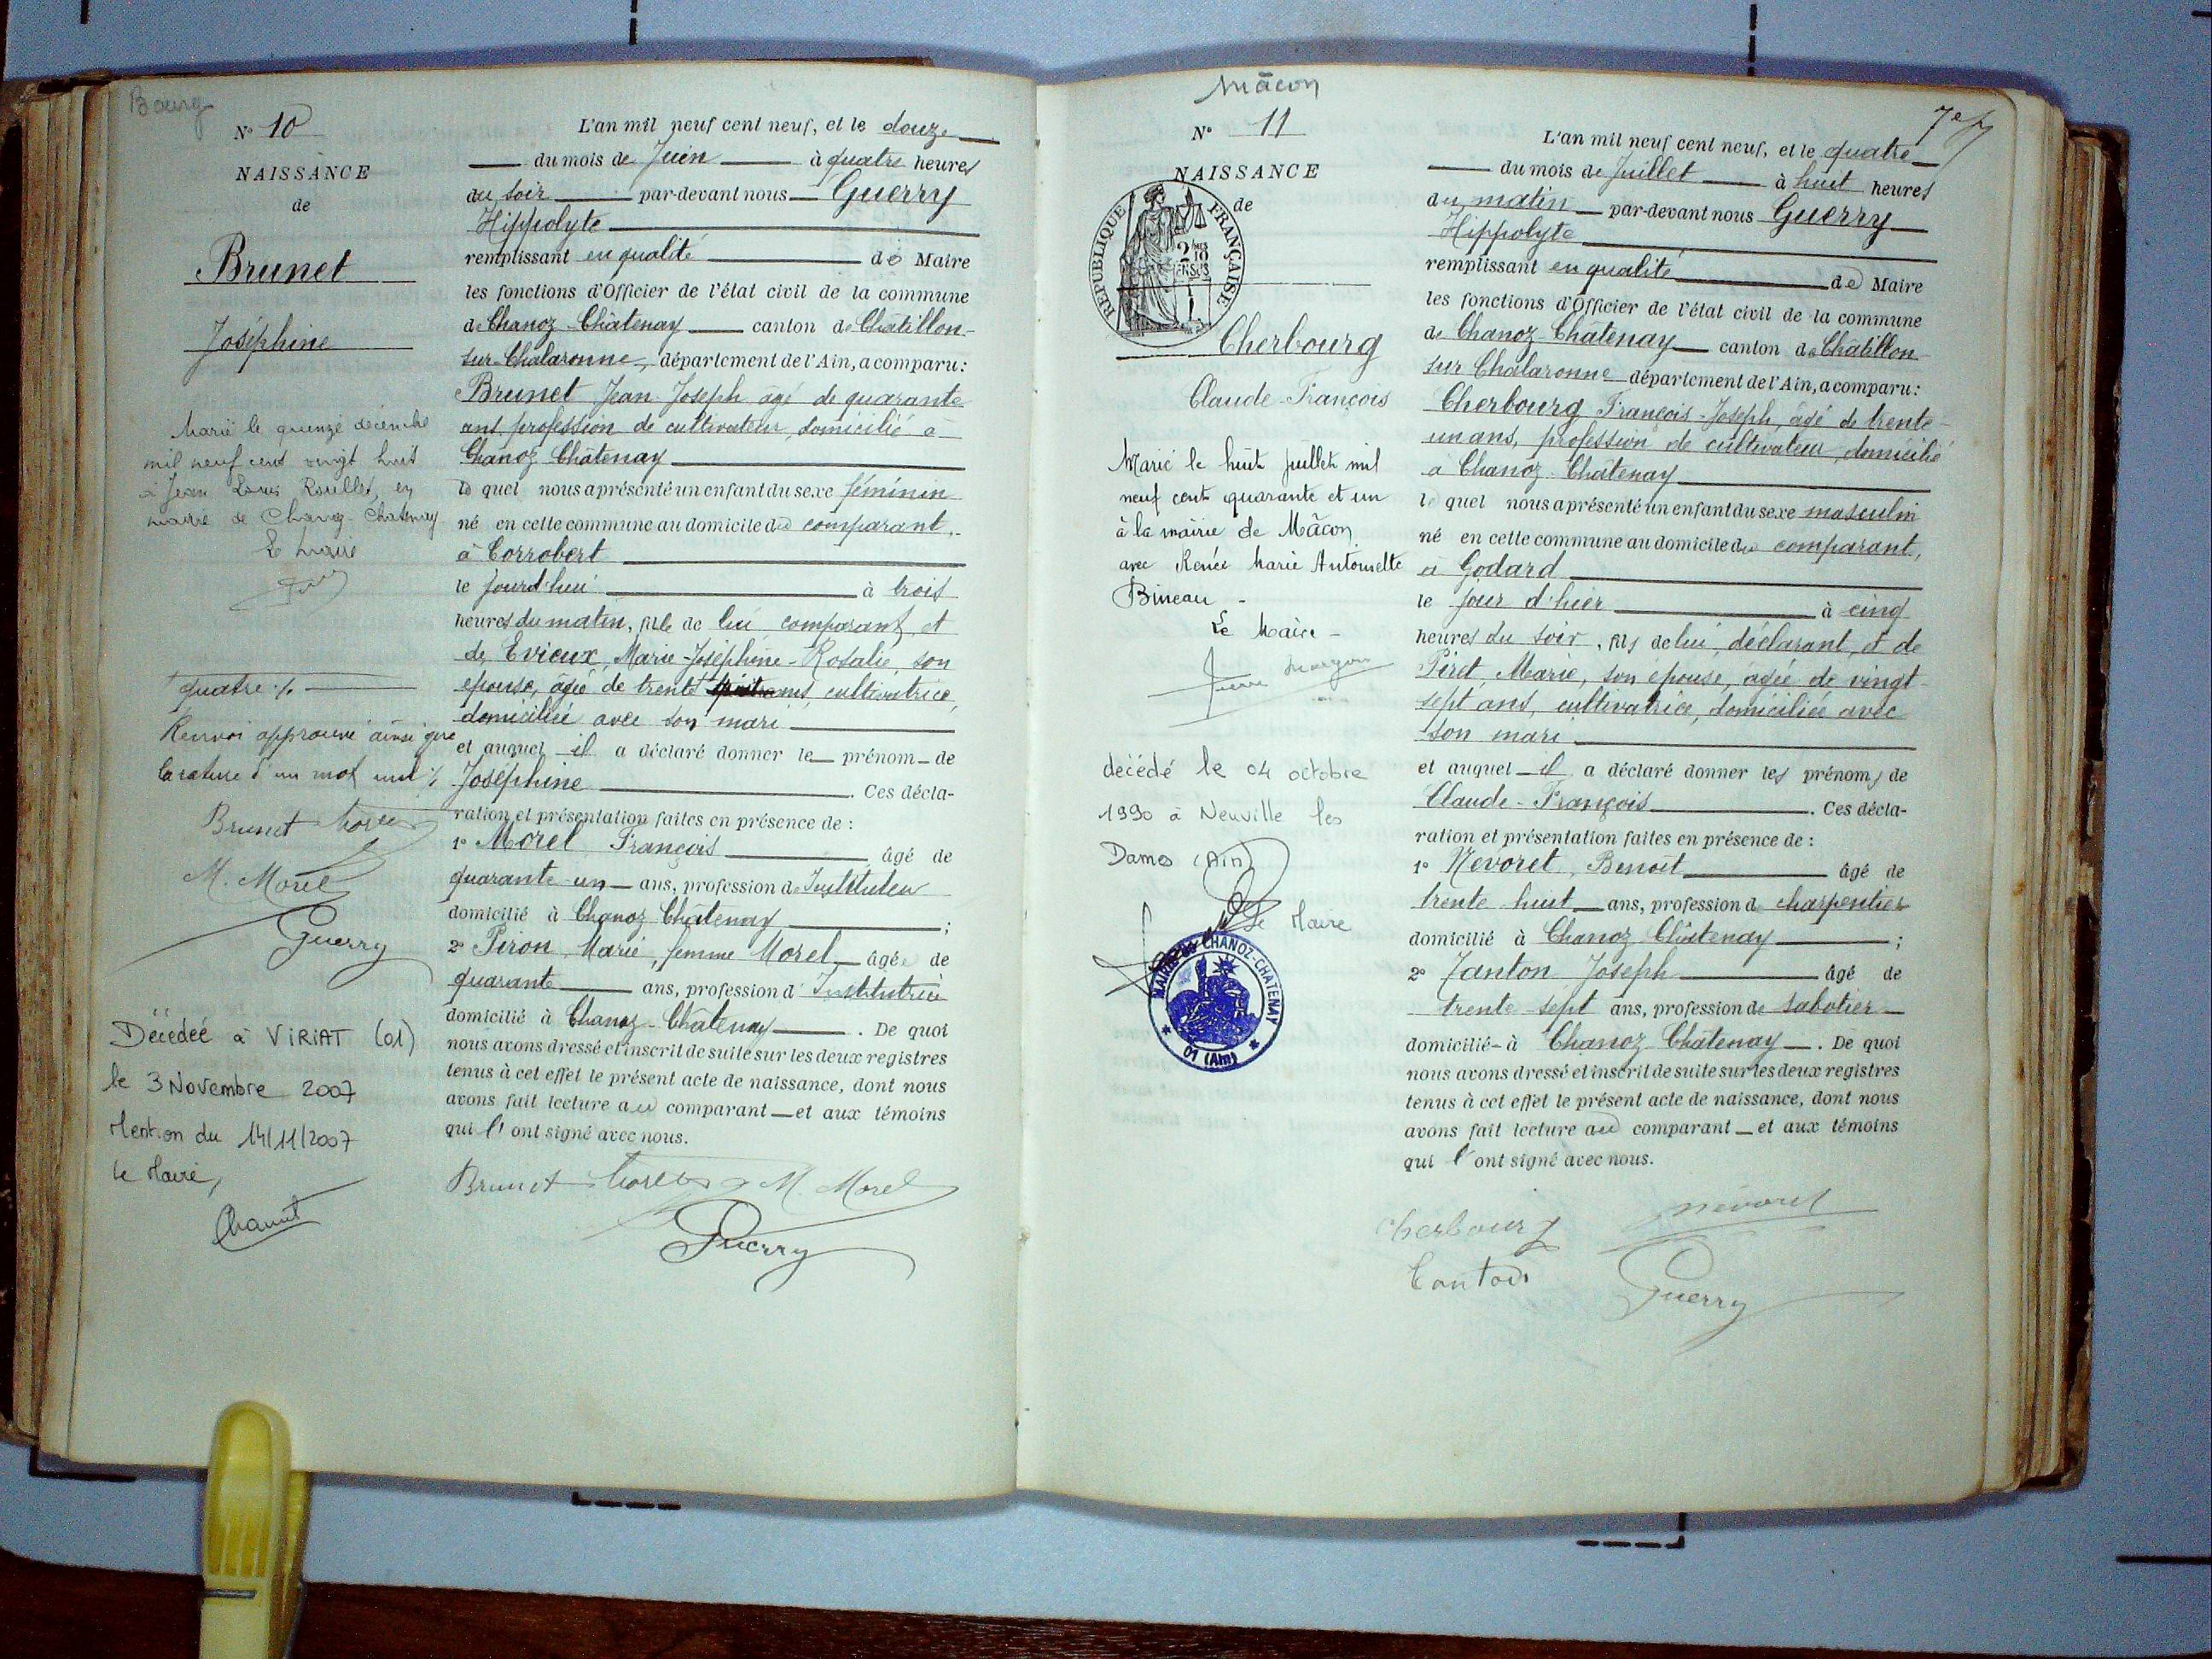 Bourg
N° 10
NAISSANCE
de
Brunet
Joséphine
Marié le quinze décembre
mil neuf cent vingt huit
à Jean Louis Roullet, en
mairie de Chanoz-Chatenay
Le maire
quatre ./.
Renvoi approuvé ainsi que
la rature d'un mot nul ./.
Brunet Morel
M. Morel
Guerry
Décédée à VIRIAT (01)
le 3 Novembre 2007
Mention du 14/11/2007
le Maire,
L'an mil neuf cent neuf, et le douze
du mois de Juin à quatre heures
du soir par-devant nous Guerry
Hippolyte
remplissant en qualité de Maire
les fonctions d'Officier de l'état civil de la commune
de Chanoz-Châtenay canton de Châtillon-
sur-Chalaronne, département de l'Ain, a comparu:
Brunet Jean-Joseph âgé de quarante
ans, profession de cultivateur, domicilié à
Chanoz-Châtenay
le quel nous a présenté un enfant du sexe féminin
né en cette commune au domicile du comparant,
à Corrobert
le jourd'hui à trois
heures du matin, fille de lui comparant, et
de Evieux, Marie-Joséphine-Rosalie, son
épouse, âgée de trente ans, cultivatrice,
domiciliée avec son mari
et auquel il a déclaré donner le prénom de
Joséphine . Ces décla-
ration et présentation faites en présence de :
1° Morel François âgé de
quarante-un ans, profession d'Instituteur
domicilié à Chanoz-Châtenay ;
2° Piron Marie, femme Morel âgée de
quarante ans, profession d'Institutrice
domicilié à Chanoz-Châtenay . De quoi
nous avons dressé et inscrit de suite sur les deux registres
tenus à cet effet le présent acte de naissance, dont nous
avons fait lecture au comparant et aux témoins
qui l'ont signé avec nous.
Brunet Morel M. Morel
Guerry
Mâcon
N° 11
NAISSANCE
de
RÉPUBLIQUE FRANÇAISE
Cherbourg
Claude-François
Marié le huit juillet mil
neuf cent quarante et un
à la mairie de Mâcon
avec Renée Marie Antoinette
Bineau -
Le Maire -
décédé le 04 octobre
1990 à Neuville les
Dames (Ain)
Le Maire
MAIRIE DE CHANOZ-CHATENAY
* 01 (Ain) *
7e
L'an mil neuf cent neuf, et le quatre
du mois de Juillet à huit heures
du matin par-devant nous Guerry
Hippolyte
remplissant en qualité de Maire
les fonctions d'Officier de l'état civil de la commune
de Chanoz-Chatenay canton de Châtillon-
sur Chalaronne département de l'Ain, a comparu:
Cherbourg François-Joseph, âgé de trente-
un ans, profession de cultivateur, domicilié
à Chanoz-Chatenay
le quel nous a présenté un enfant du sexe masculin
né en cette commune au domicile du comparant,
à Godard
le jour d'hier à cinq
heures du soir, fils de lui, déclarant, et de
Piret Marie, son épouse, âgée de vingt-
sept ans, cultivatrice, domiciliée avec
son mari
et auquel il a déclaré donner les prénoms de
Claude-François . Ces décla-
ration et présentation faites en présence de :
1° Nevoret, Benoît âgé de
trente huit ans, profession de charpentier
domicilié à Chanoz Châtenay ;
2° Janton Joseph âgé de
trente sept ans, profession de sabotier
domicilié à Chanoz-Châtenay . De quoi
nous avons dressé et inscrit de suite sur les deux registres
tenus à cet effet le présent acte de naissance, dont nous
avons fait lecture au comparant et aux témoins
qui l'ont signé avec nous.
Cherbourg Nevoret
Guerry